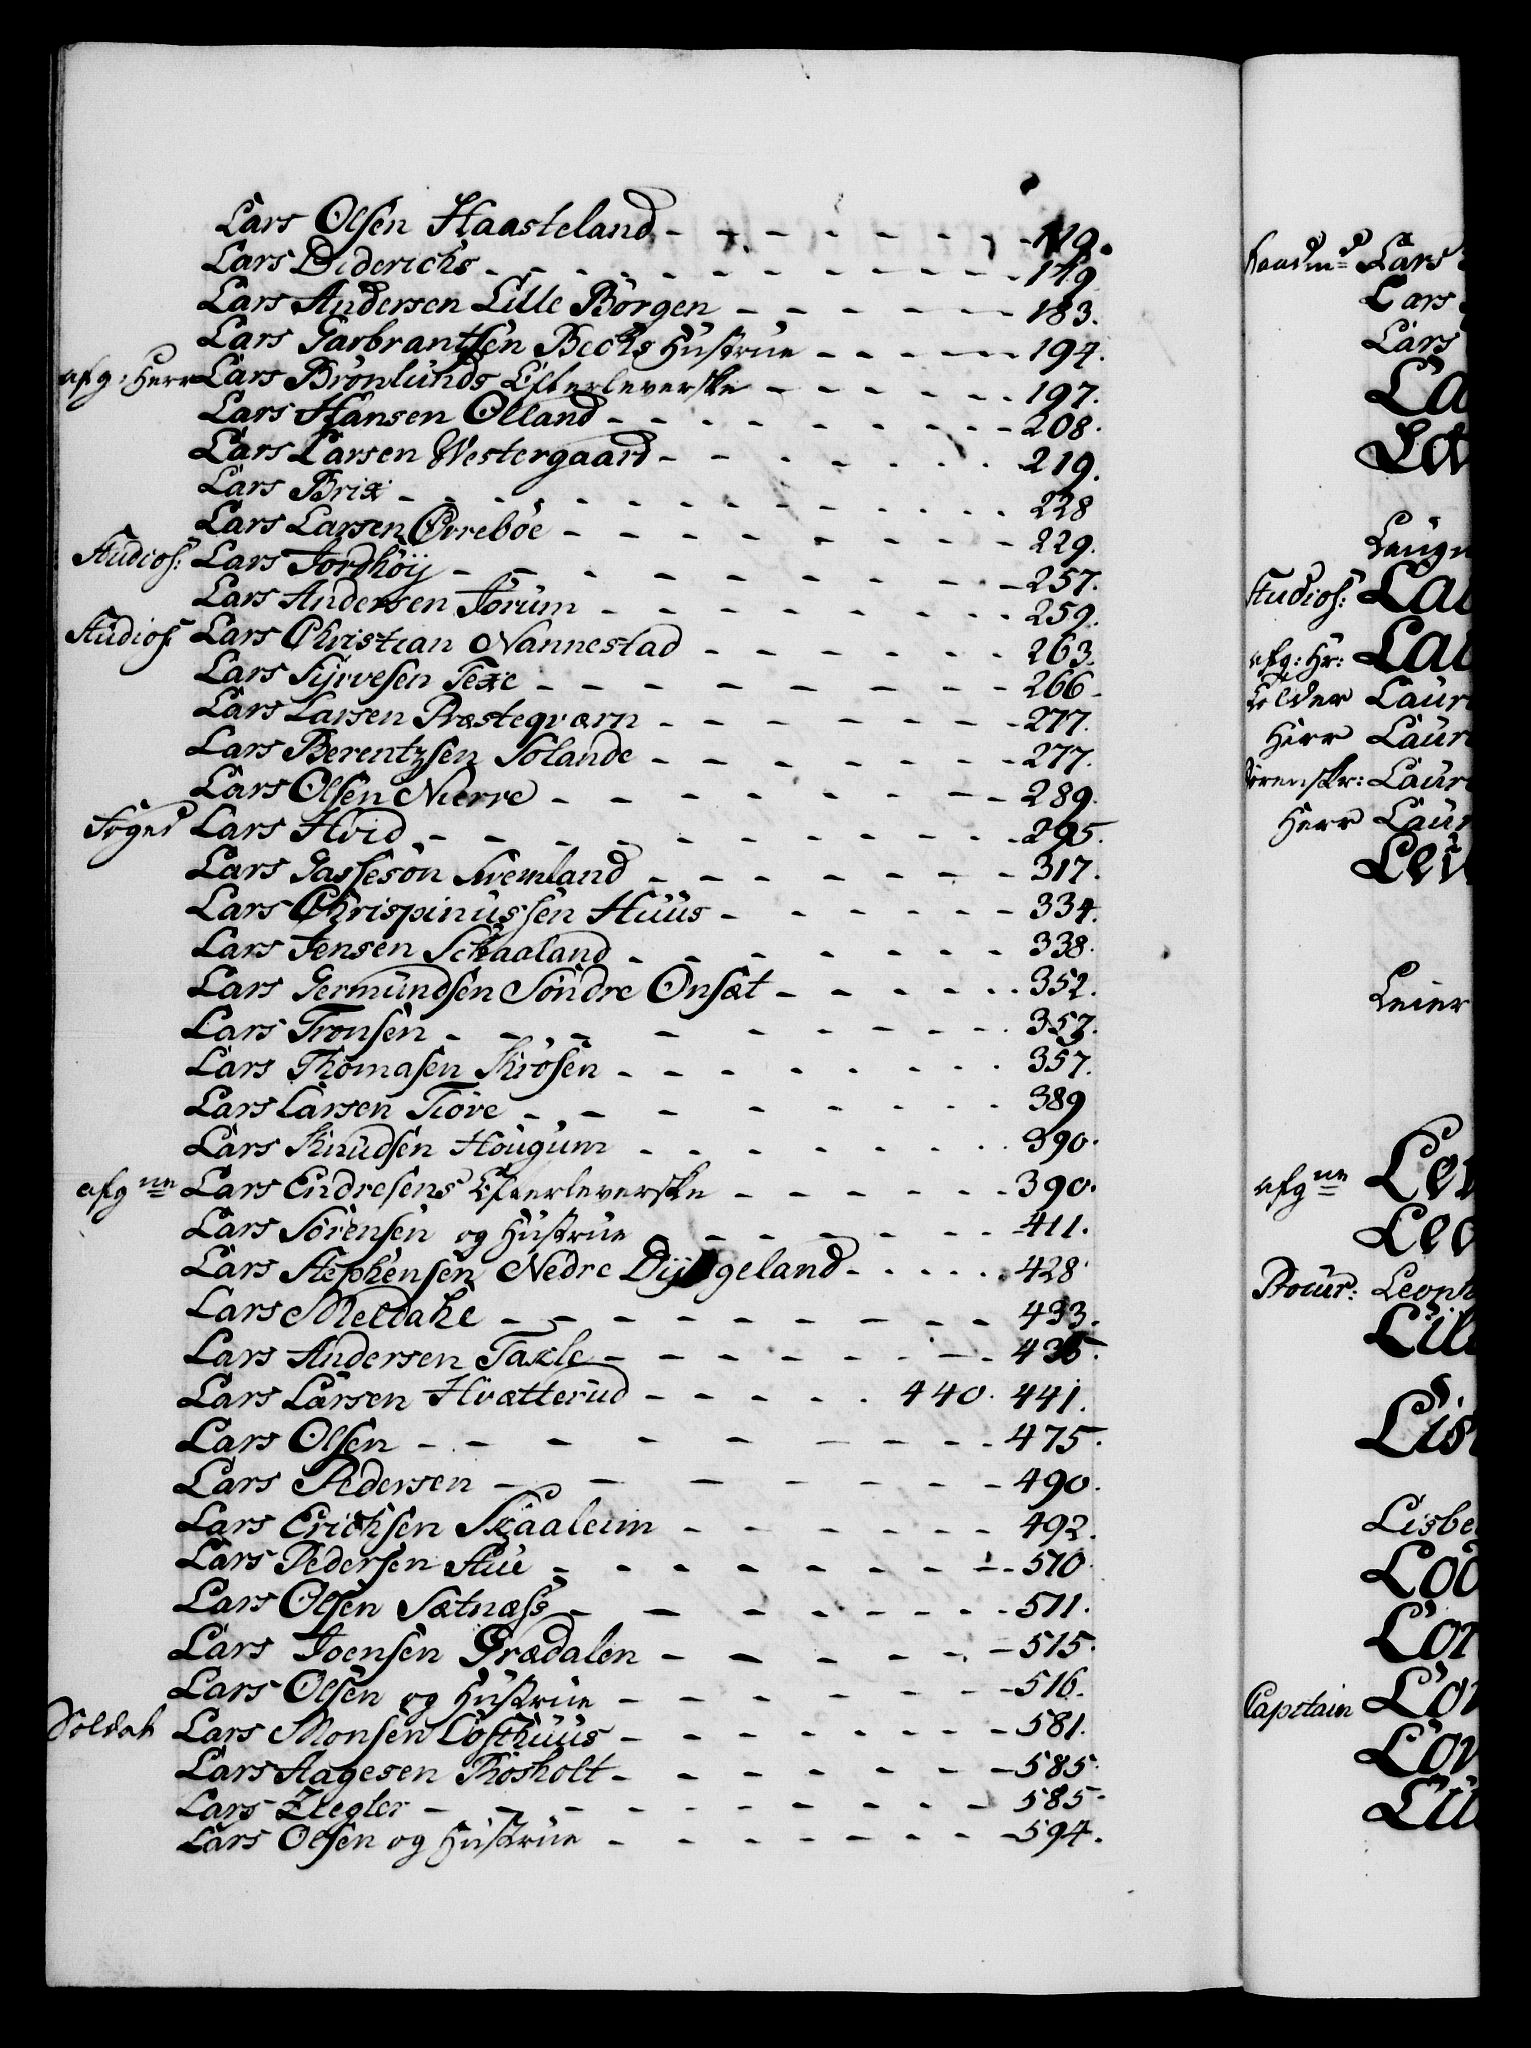 Lars Olsen Haasteland - - - - - - - - 119.
Lars Diderichs - - - - - - - - - - 149
Lars Andersen Lille Børgen - - - - - - 183.
Lars Garbrantsen Bechs Hustrue - - - - - 194.
afg: Herr Lars Brønlunds Efterleverske - - - - - - 197.
Lars Hansen Olland - - - - - - - - 208.
Lars Larsen Westergaard - - - - - - - 219.
Lars Brix - - - - - - - - - - - 228
Lars Larsen Ørrebøe - - - - - - - - 229.
Studios: Lars Jordhøÿ - - - - - - - - - 257.
Lars Andersen Jorum - - - - - - - - 259.
Studios: Lars Christian Nannestad - - - - - - 263.
Lars Syvesen Texe - - - - - - - - - 266
Lars Larsen Præsteqværn - - - - - - - 277.
Lars Berentzsen Solande - - - - - - - 277.
Lars Olsen Nierre - - - - - - - - - 289.
Foged Lars Hvid - - - - - - - - - - 295.
Lars Gasseson Svemland - - - - - - - 317.
Lars Chrispinussen Huus - - - - - - 334.
Lars Jensen Schaaland - - - - - - - 338.
Lars Germundsen Søndre Onsæt - - - - - - 352.
Lars Tronsen - - - - - - - - - - 357.
Lars Thomasen Krosen - - - - - - - - 357.
Lars Larsen Tiøre - - - - - - - - 389
Lars Knudsen Hougum - - - - - - - - 390.
afg ne Lars Endresens Efterleverske - - - - - - 390.
Lars Sørensen og Hustrue - - - - - - 411.
Lars Stephensen Nedre Dÿngeland - - - - - 428
Lars Meldahl - - - - - - - - - 433.
Lars Andersen Taxle - - - - - - - - 435.
Lars Larsen Hvætterud - - - - - 440. 441.
Lars Olsen - - - - - - - - - 475.
Lars Pedersen - - - - - - - - 490.
Lars Erichsen Skaaleim - - - - - - - 492.
Lars Pedersen Stue - - - - - - - - 510.
Lars Olsen Sætnæss - - - - - - - - 511.
Lars Joensen Grædalen - - - - - - - 515.
Lars Olsen og Hustrue - - - - - - - 516.
Soldat Lars Monsen Lofthuus - - - - - - - 581.
Lars Aagesen Røsholt - - - - - - - 585.
Lars Ziegler - - - - - - - - - 585.
Lars Olsen og Hustrue - - - - - - - 594.
Lars
Cars
Lars
Studios:
afg: Hr:
Herr
Herr
Leier
afg ne
Procur:
Capitain